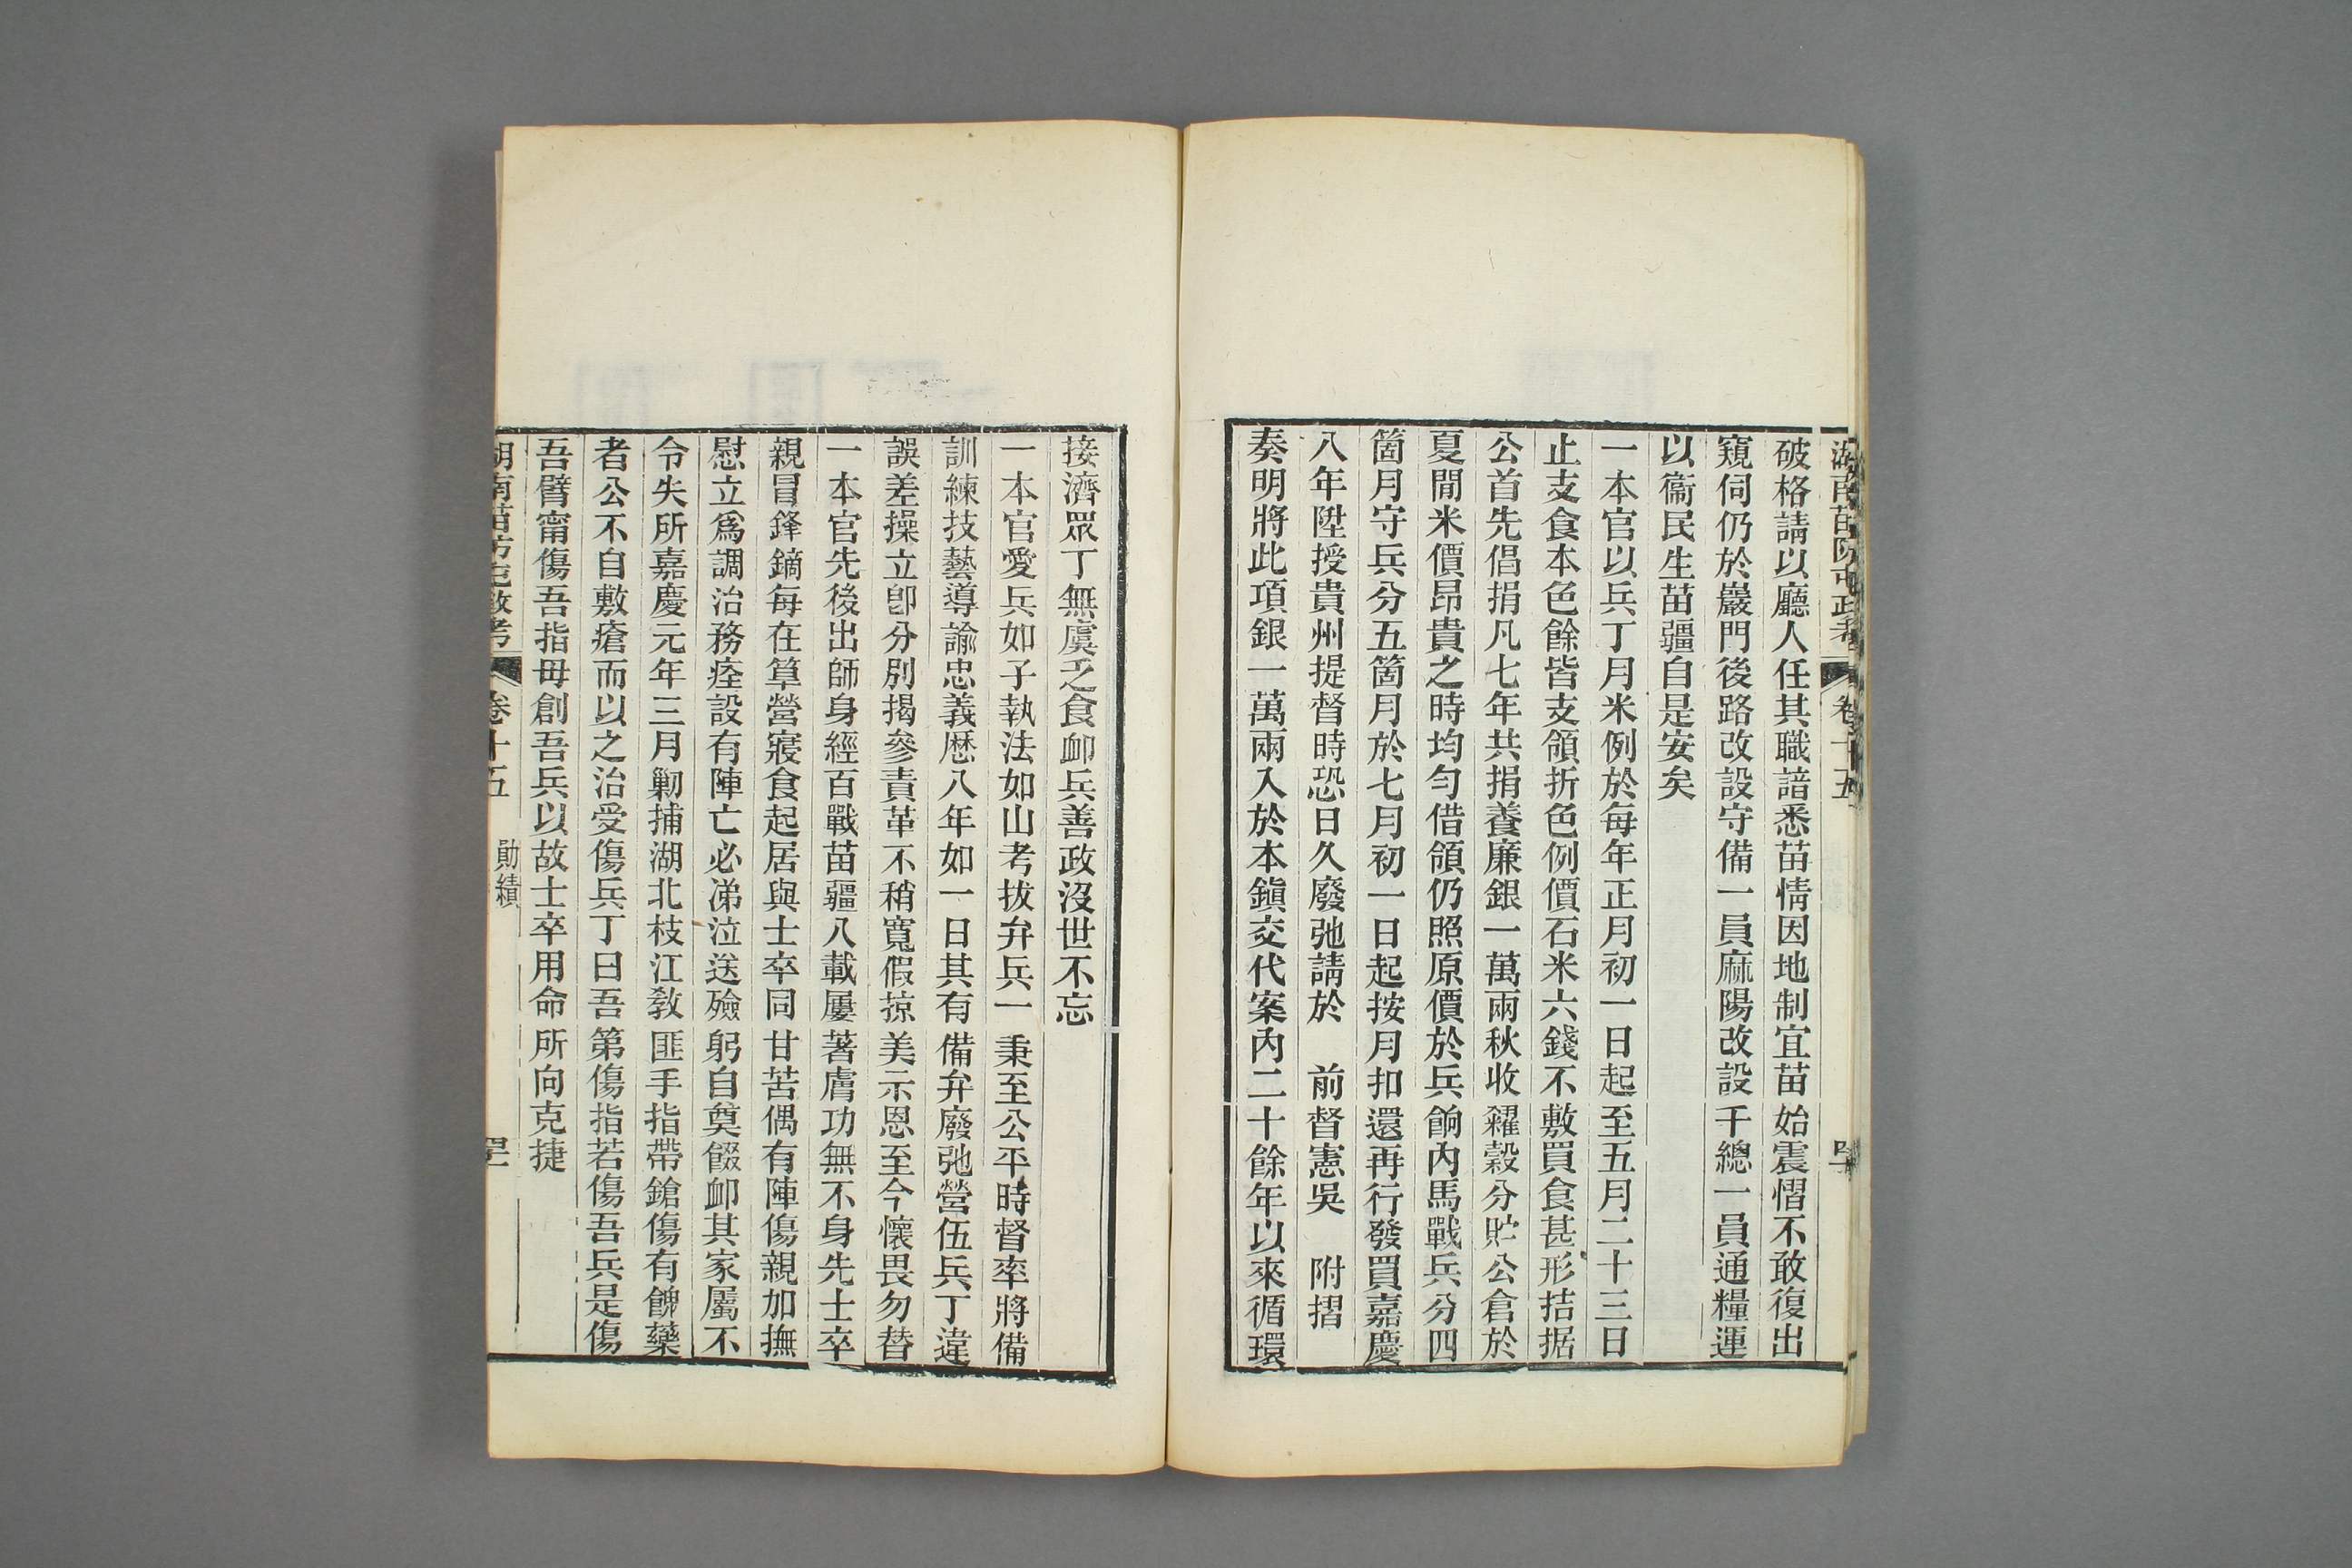 湖南苗防屯政考 卷十五
破格請以廳人任其職諳悉苗情因地制宜苗始震慴不敢復出
窺伺仍於巖門後路改設守備一員麻陽改設千總一員通糧運
以衞民生苗疆自是安矣
一本官以兵丁月米例於每年正月初一日起至五月二十三日
止支食本色餘皆支領折色例價石米六錢不敷買食甚形拮据
公首先倡捐凡七年共捐養廉銀一萬兩秋收糴穀分貯公倉於
夏閒米價昂貴之時均勻借領仍照原價於兵餉內馬戰兵分四
箇月守兵分五箇月於七月初一日起按月扣還再行發買嘉慶
八年陞授貴州提督時恐日久廢弛請於 前督憲吳 附摺
奏明將此項銀一萬兩入於本鎭交代案內二十餘年以來循環
接濟眾丁無虞乏食卹兵善政沒世不忘
一本官愛兵如子執法如山考拔弁兵一秉至公平時督率將備
訓練技藝導諭忠義歷八年如一日其有備弁廢弛營伍兵丁違
誤差操立卽分別揭參責革不稍寬假掠美示恩至今懷畏勿替
一本官先後出師身經百戰苗疆八載屢著膚功無不身先士卒
親冒鋒鏑每在草營寢食起居與士卒同甘苦偶有陣傷親加撫
慰立爲調治務痊設有陣亡必涕泣送殮躬自奠餟卹其家屬不
令失所嘉慶元年三月勦捕湖北枝江敎匪手指帶鎗傷有餽藥
者公不自敷瘡而以之治受傷兵丁曰吾第傷指若傷吾兵是傷
吾臂甯傷吾指毋創吾兵以故士卒用命所向克捷
湖南苗防屯政考 卷十五 勛績